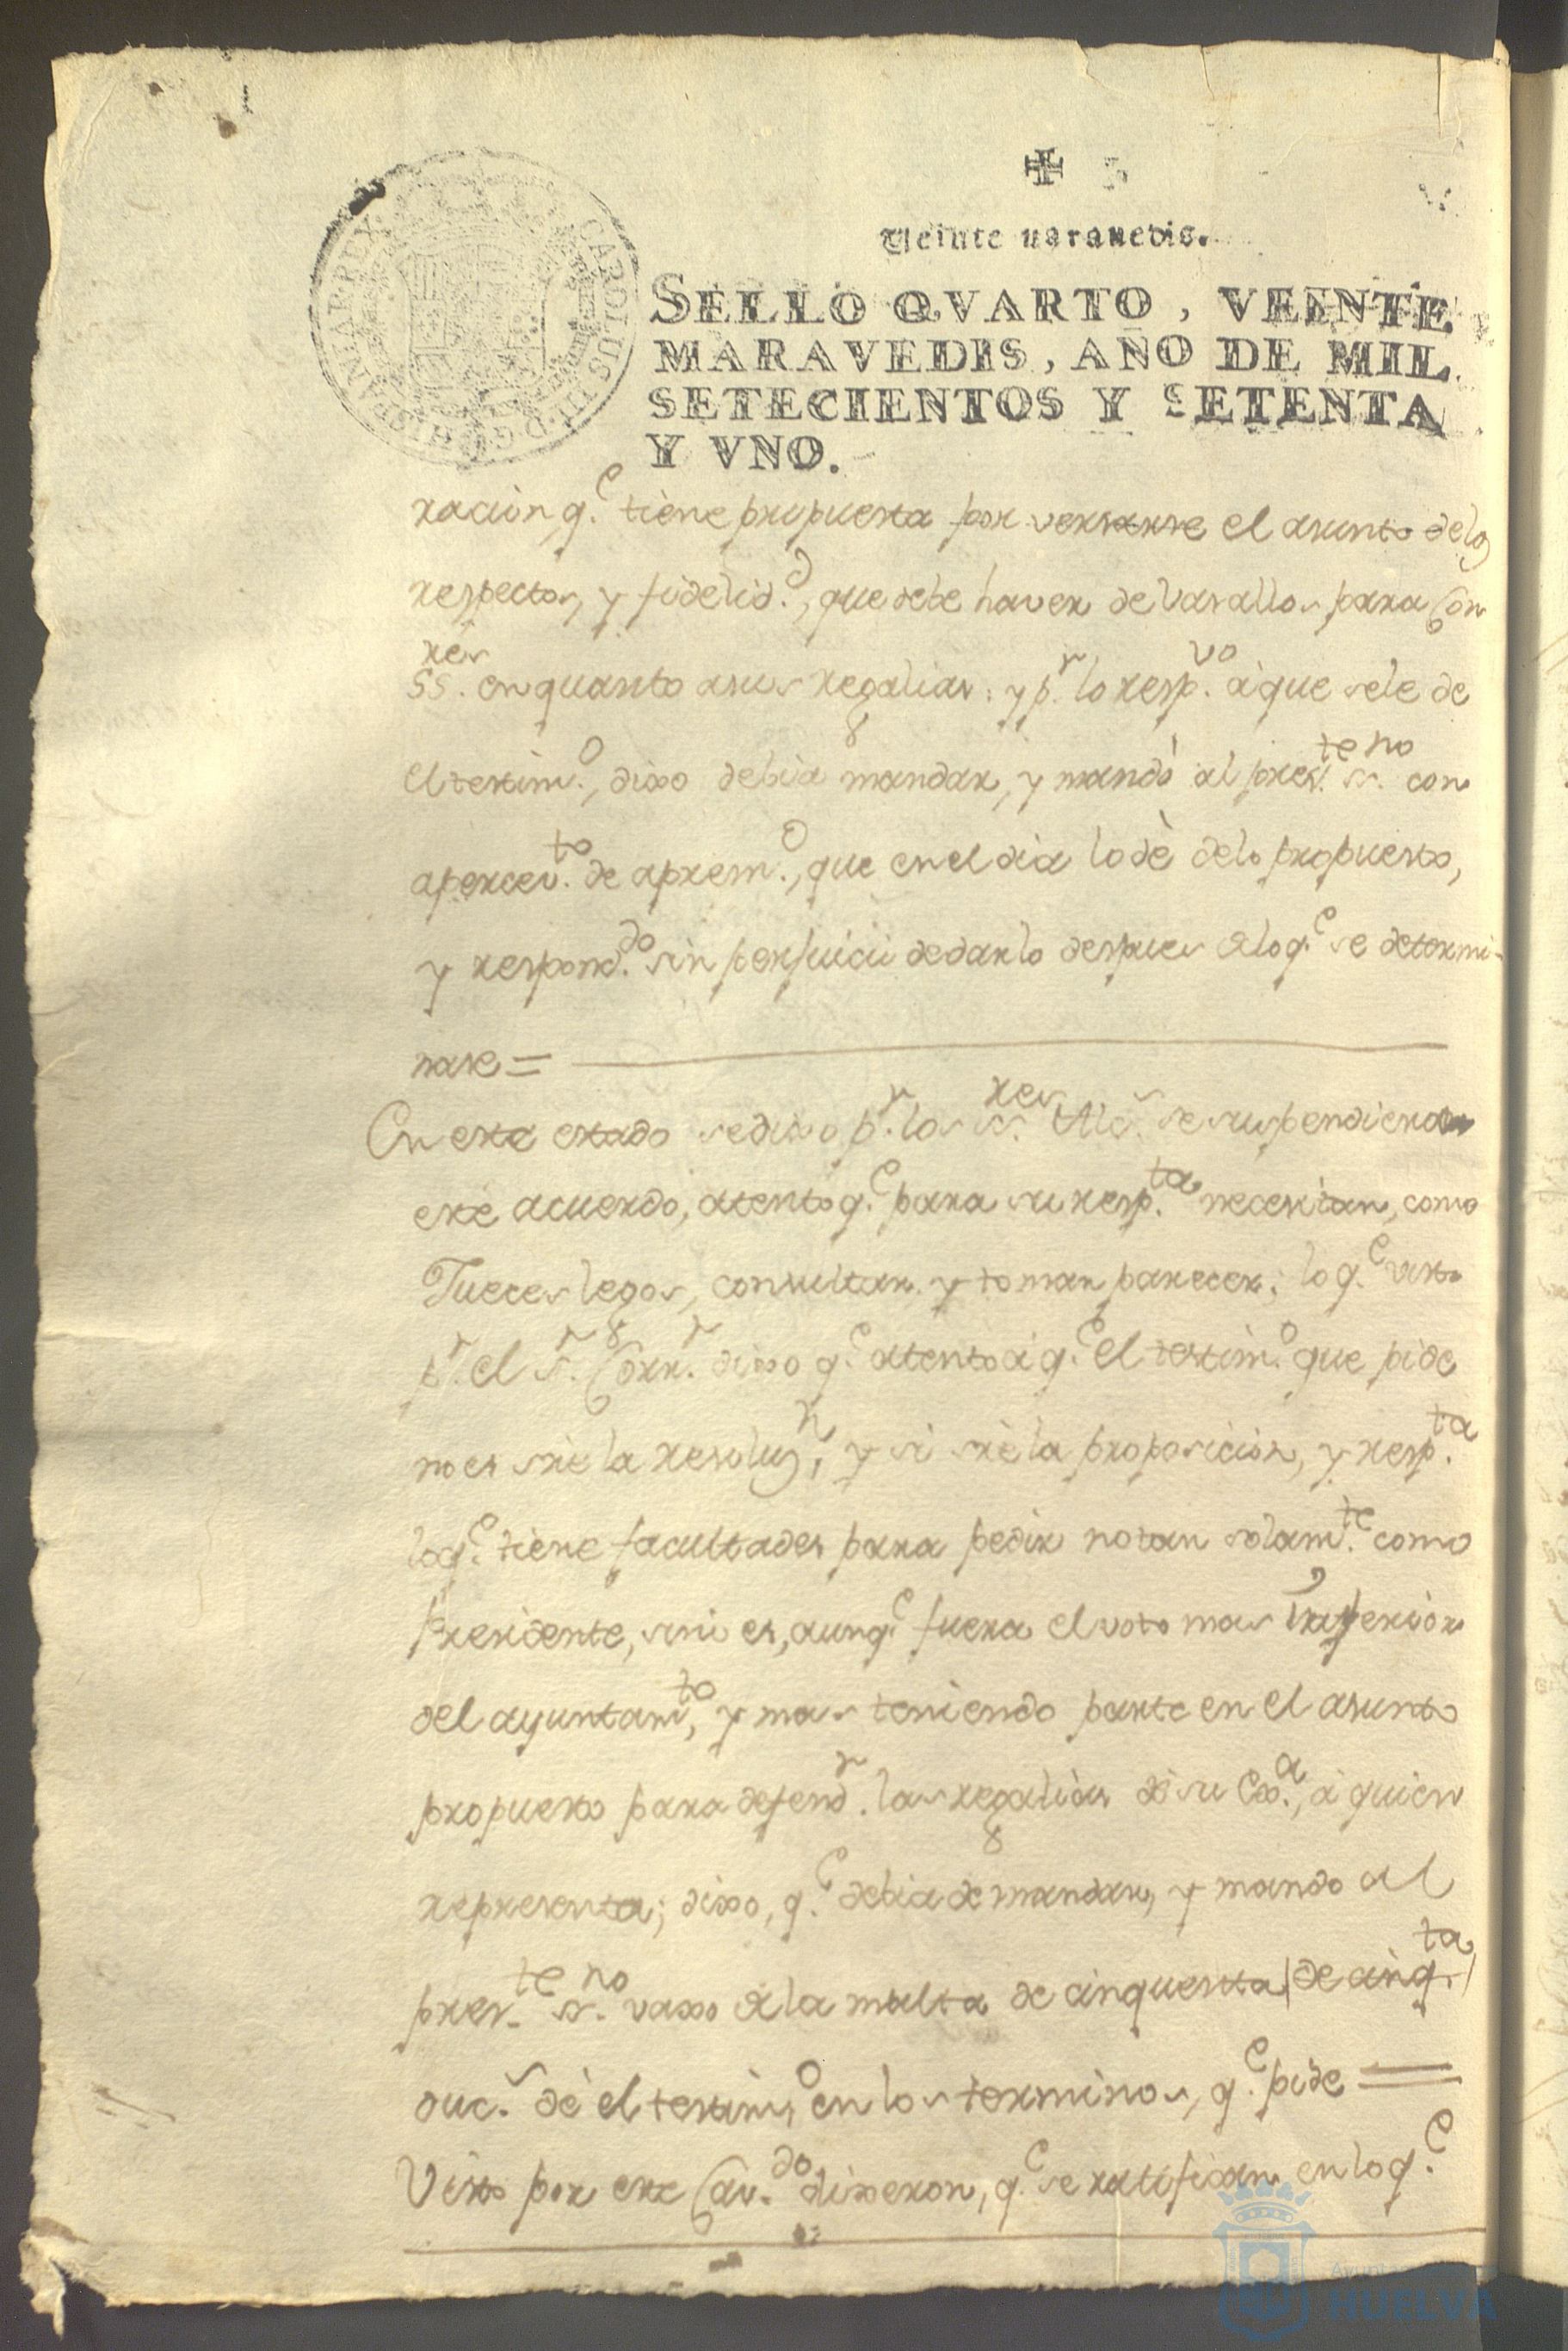 Veinte maravedis.
CAROLUS III. D. G. HISPANIAR. REX.
SELLO QVARTO, VEINTE
MARAVEDIS, AÑO DE MIL
SETECIENTOS Y SETENTA
Y VNO.
racion, q.e tiene propuesta por versarse el asunto de los
respectos, y fidelid.d, que debe haver de Vasallos para con
SS.res en quanto a sus regalias: y p.r lo resp.vo à que se le de
el testim.o, dixo debia mandar, y mandò al pres.te ss.no con
apercev.to de aprem.o, que en el dia lo dè de lo propuesto,
y respond.do sin perjuicio de darlo despues de lo q.e se determi-
nase =
En este estado se dixo p.r los ss.res Alc.s se suspendiera
este acuerdo, atento q.e para su resp.ta necesitan, como
Jueces legos, consultar y tomar parecer; lo q.e visto
p.r el s.r Corr.r dixo q.e atento à q.e el testim.o que pide
no es sre la resoluz.n, y si sre la proposicion, y resp.ta
lo q.e tiene facultades para pedir no tan solam.te como
Presidente, sino es, aunq.e fuera el voto mas Inferior
del ayuntam.to, y mas teniendo parte en el asunto
propuesto para defend.r las regalias de su Exa.a, à quien
representa; dixo, q.e debia de mandar, y mando al
pres.te ss.no vaxo de la multa de cinquenta (de cinq.ta)
duc.s dè el testim.o en los terminos, q.e pide =
Visto por este Cav.do dixeron, q.e se ratifican en lo q.e
HUELVA